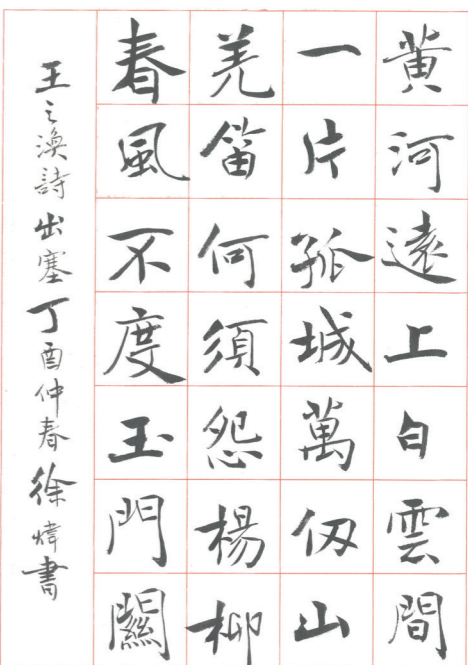 黃河遠上白雲間
一片孤城萬仞山
羌笛何須怨楊柳
春風不度玉門關
王之渙詩出塞丁酉仲春徐煒書